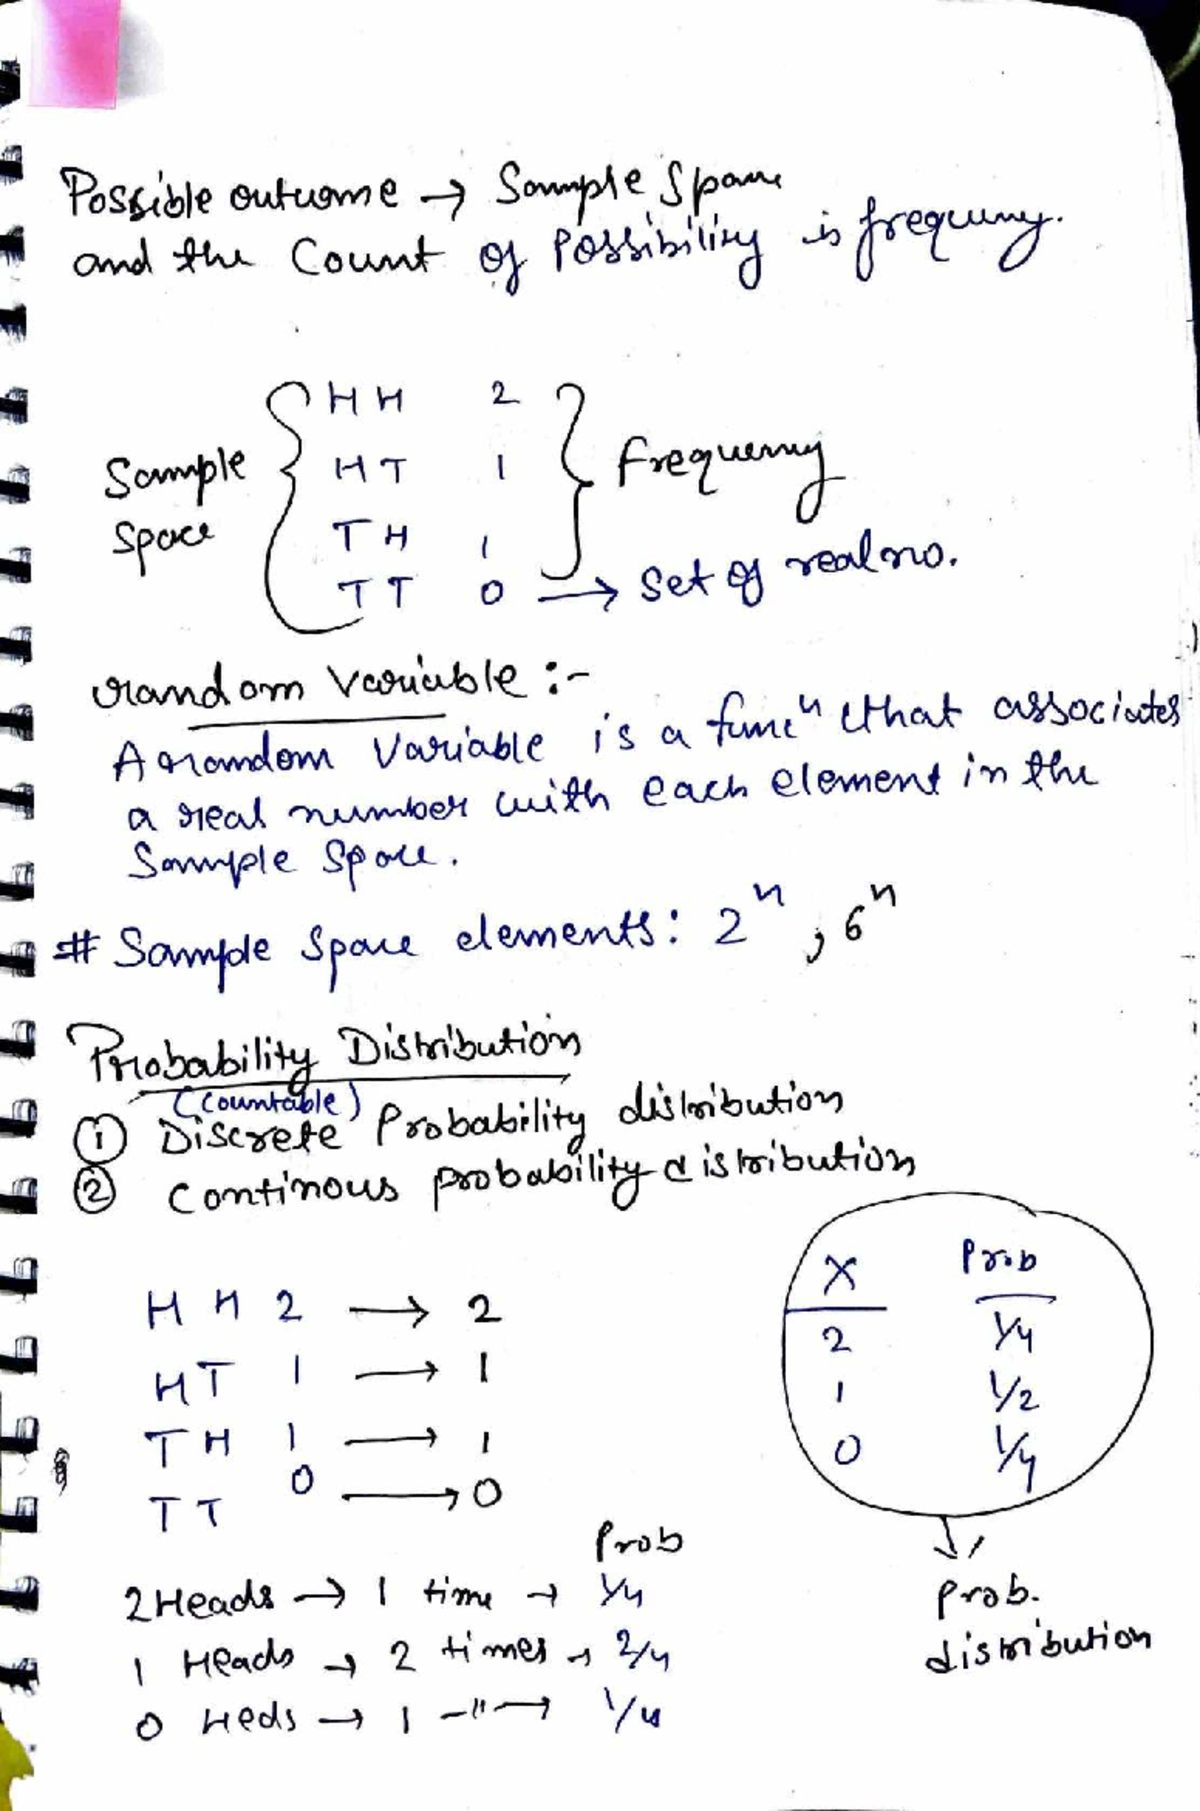 Possible outcome → Sample Space
and the Count of Possibility is frequency.
HH 2
Sample HT 1 frequency
Space TH 1
TT 0 → Set of real no.
random Variable :-
A random Variable is a funcⁿ that associates
a real number with each element in the
Sample Space.
# Sample Space elements: 2ⁿ, 6ⁿ
Probability Distribution
(Countable)
① Discrete Probability distribution
② Continous probability distribution
X Prob
2 1/4
1 1/2
0 1/4
prob.
distribution
H H 2 → 2
HT 1 → 1
TH 1 → 1
TT 0 → 0
Prob
2 Heads → 1 time → 1/4
1 Heads → 2 times → 2/4
0 Heds → 1 -"-→ 1/4